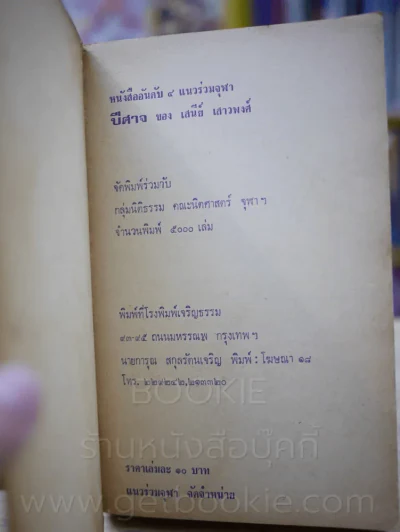 หนังสืออันดับ ๔ แนวร่วมจุฬา
ปีศาจ ของ เสนีย์ เสาวพงศ์
จัดพิมพ์ร่วมกับ
กลุ่มนิติธรรม คณะนิติศาสตร์ จุฬาฯ
จำนวนพิมพ์ ๕๐๐๐ เล่ม
พิมพ์ที่โรงพิมพ์เจริญธรรม
๙๓-๙๕ ถนนมหรรณพ กรุงเทพฯ
นายการุณ สกุลรัตนเจริญ พิมพ์ : โฆษณา ๑๘
โทร. ๒๒๙๒๔๒,๒๑๓๓๒๐
BOOKIE
ร้านหนังสือบุ๊คกี้
ราคาเล่มละ ๑๐ บาท
แนวร่วมจุฬา จัดจำหน่าย
www.getbookie.com